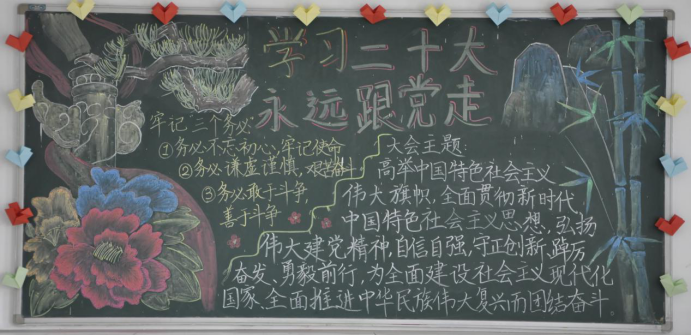 学习二十大
永远跟党走
牢记“三个务必”
①务必不忘初心、牢记使命
②务必谦虚谨慎，艰苦奋斗
③务必敢于斗争，
善于斗争
大会主题：
高举中国特色社会主义
伟大旗帜，全面贯彻新时代
中国特色社会主义思想，弘扬
伟大建党精神，自信自强，守正创新，踔厉
奋发、勇毅前行，为全面建设社会主义现代化
国家、全面推进中华民族伟大复兴而团结奋斗